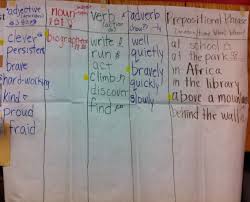 adjective
noun
verb
adverb
Prepositional Phrase
clever
persistent
brave
hard-working
kind
proud
fraid
biographer
write
run
act
climb
discover
find
well
quietly
bravely
quickly
slowly
at school
at the park
in Africa
in the library
above a mountain
behind the wall